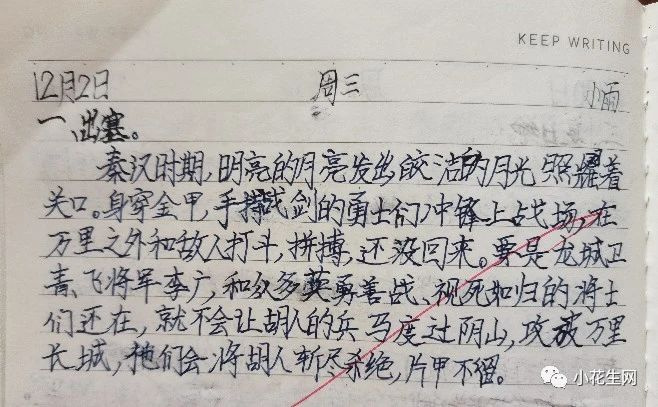 KEEP WRITING
12月2日 周三 小雨
一、出塞。
秦汉时期,明亮的月亮发出皎洁的月光照耀着
关口。身穿金甲,手持战剑的勇士们冲锋上战场,在
万里之外和敌人打斗,拼搏,还没回来。要是龙城卫
青、飞将军李广,和众多英勇善战、视死如归的将士
们还在,就不会让胡人的兵马度过阴山,攻破万里
长城,他们会将胡人斩尽杀绝,片甲不留。
小花生网